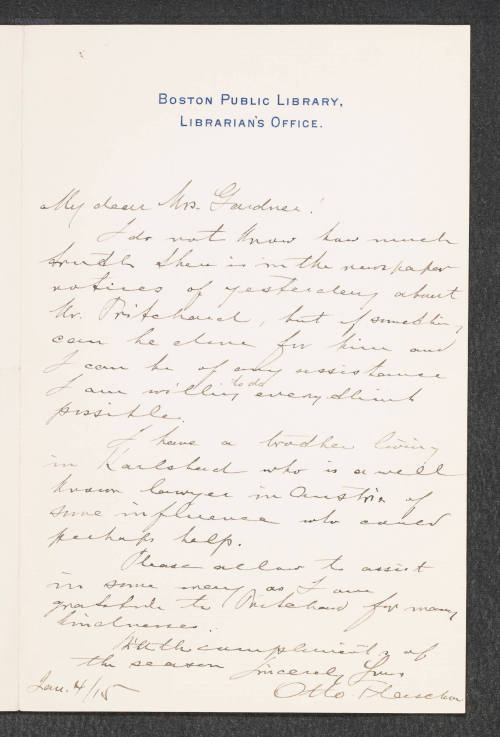 BOSTON PUBLIC LIBRARY,
LIBRARIAN'S OFFICE.
My dear Mrs. Gardner!
I do not know how much
truth there is in the newspaper
notices of yesterday about
Mr. Pritchard, but if something
can be done for him and
I can be of any assistance
I am willing to do everything
possible.
I have a brother living
in Karlsbad who is a well
known lawyer in Austria of
some influence who could
perhaps help.
Please allow to assist
in some way as I am
grateful to Pritchard for many
kindnesses.
With compliments of
the season Sincerely Yours
Jan. 4/15 Otto Fleischner